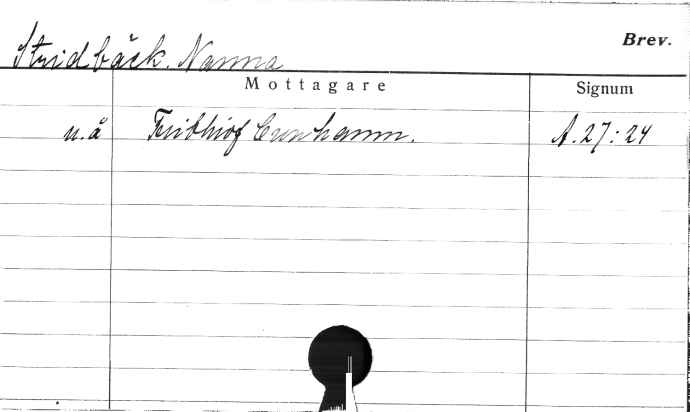 Brev.
Stridbäck. Nanna
Mottagare Signum
u.å Frithiof Cronhamm. A.27:24